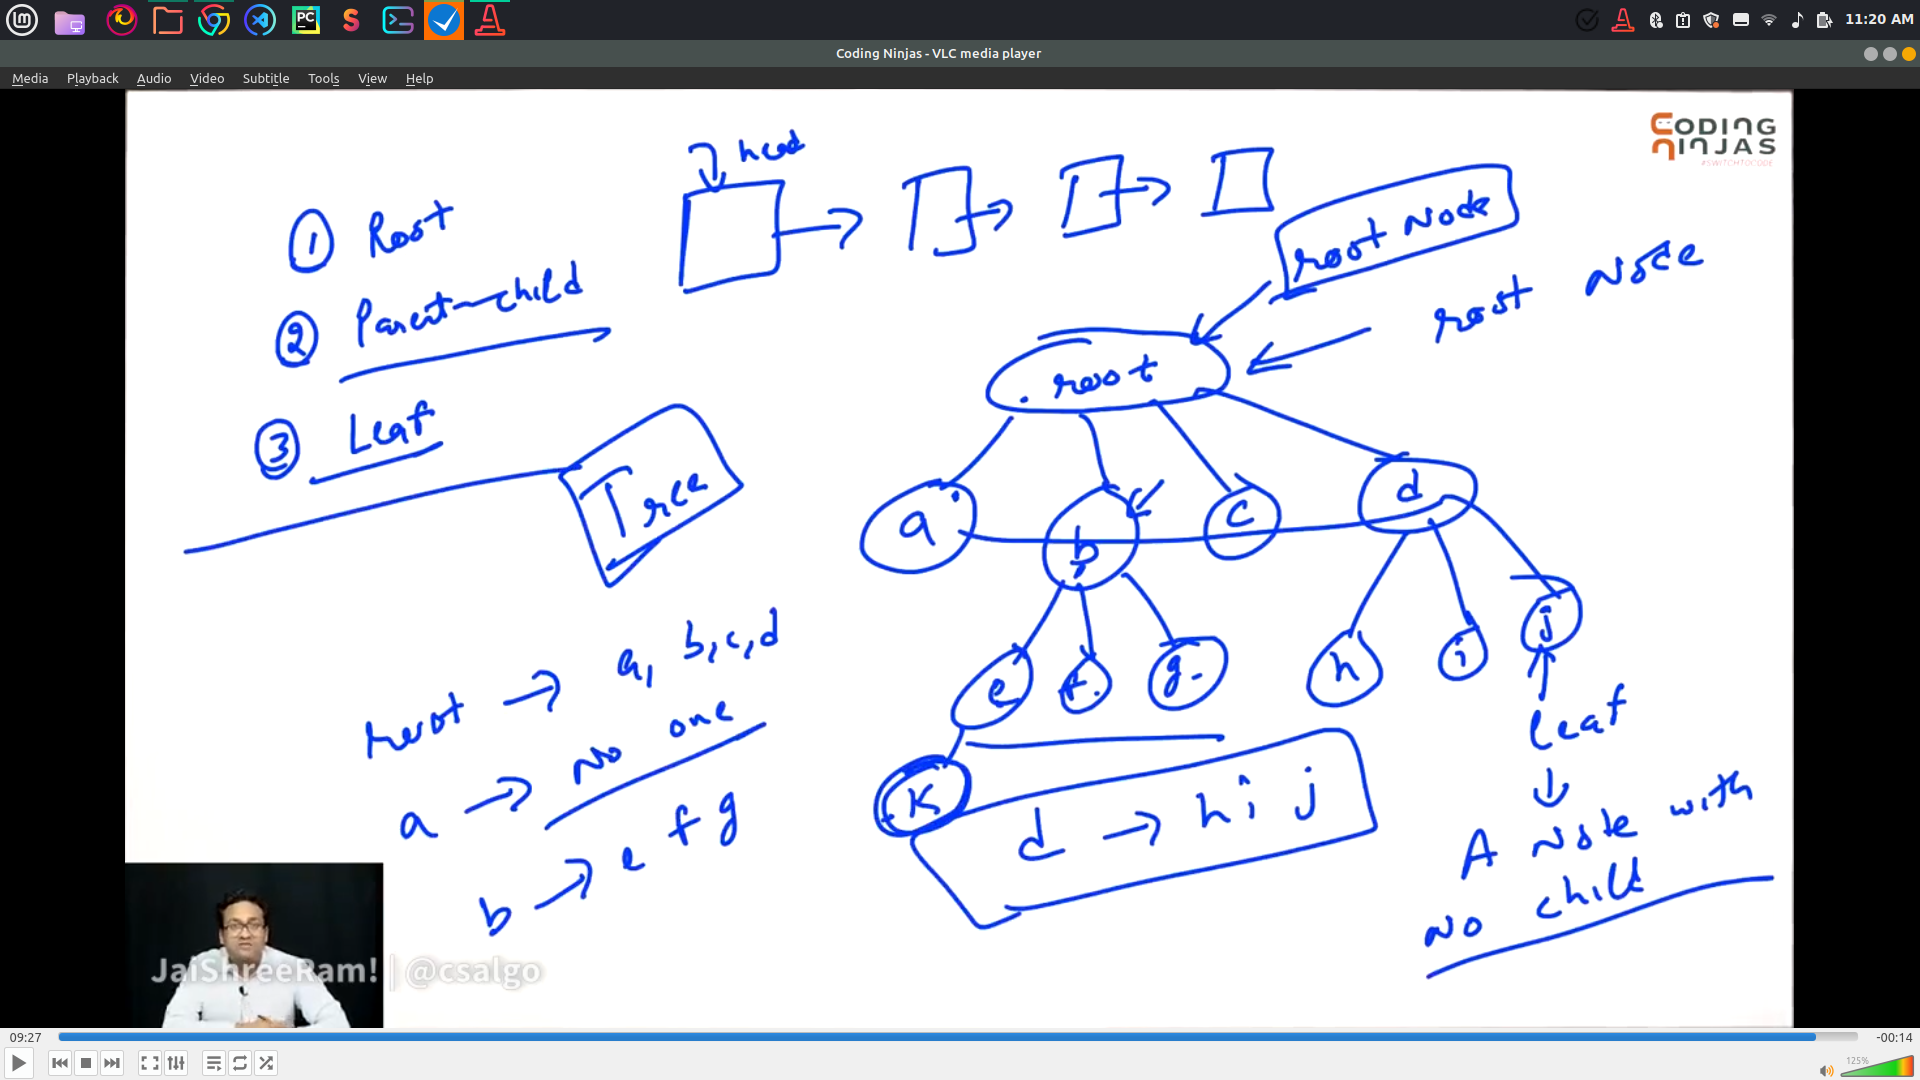 11:20 AM
Coding Ninjas - VLC media player
Media Playback Audio Video Subtitle Tools View Help
CODING
NINJAS
#SWITCHTOCODE
head
1 Root
2 Parent-child
3 Leaf
Tree
root Node
root Node
root
a b c d
e f. g. h i j
K
root → a, b, c, d
a → No one
b → e f g
d → h i j
leaf
A Node with
No child
JaiShreeRam! | @csalgo
09:27
-00:14
125%